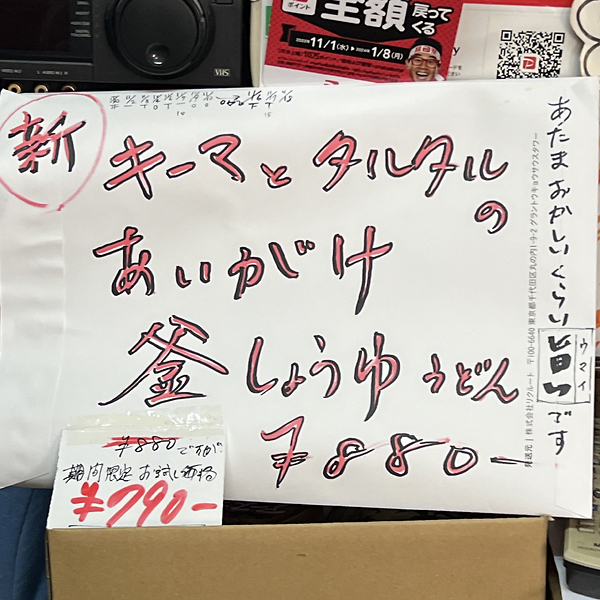 ポイント
全額
戻って
くる
11/1(水)
1/8(月)
VHS
新
キーマとタルタル
の
あいがけ
釜しょうゆうどん
¥880-
あたまおかしいくらい旨いです
ウマイ
発送元 | 株式会社リクルート 〒100-6640 東京都千代田区丸の内1-9-2 グラントウキョウサウスタワー
¥880ですが
期間限定お試し価格
¥790-